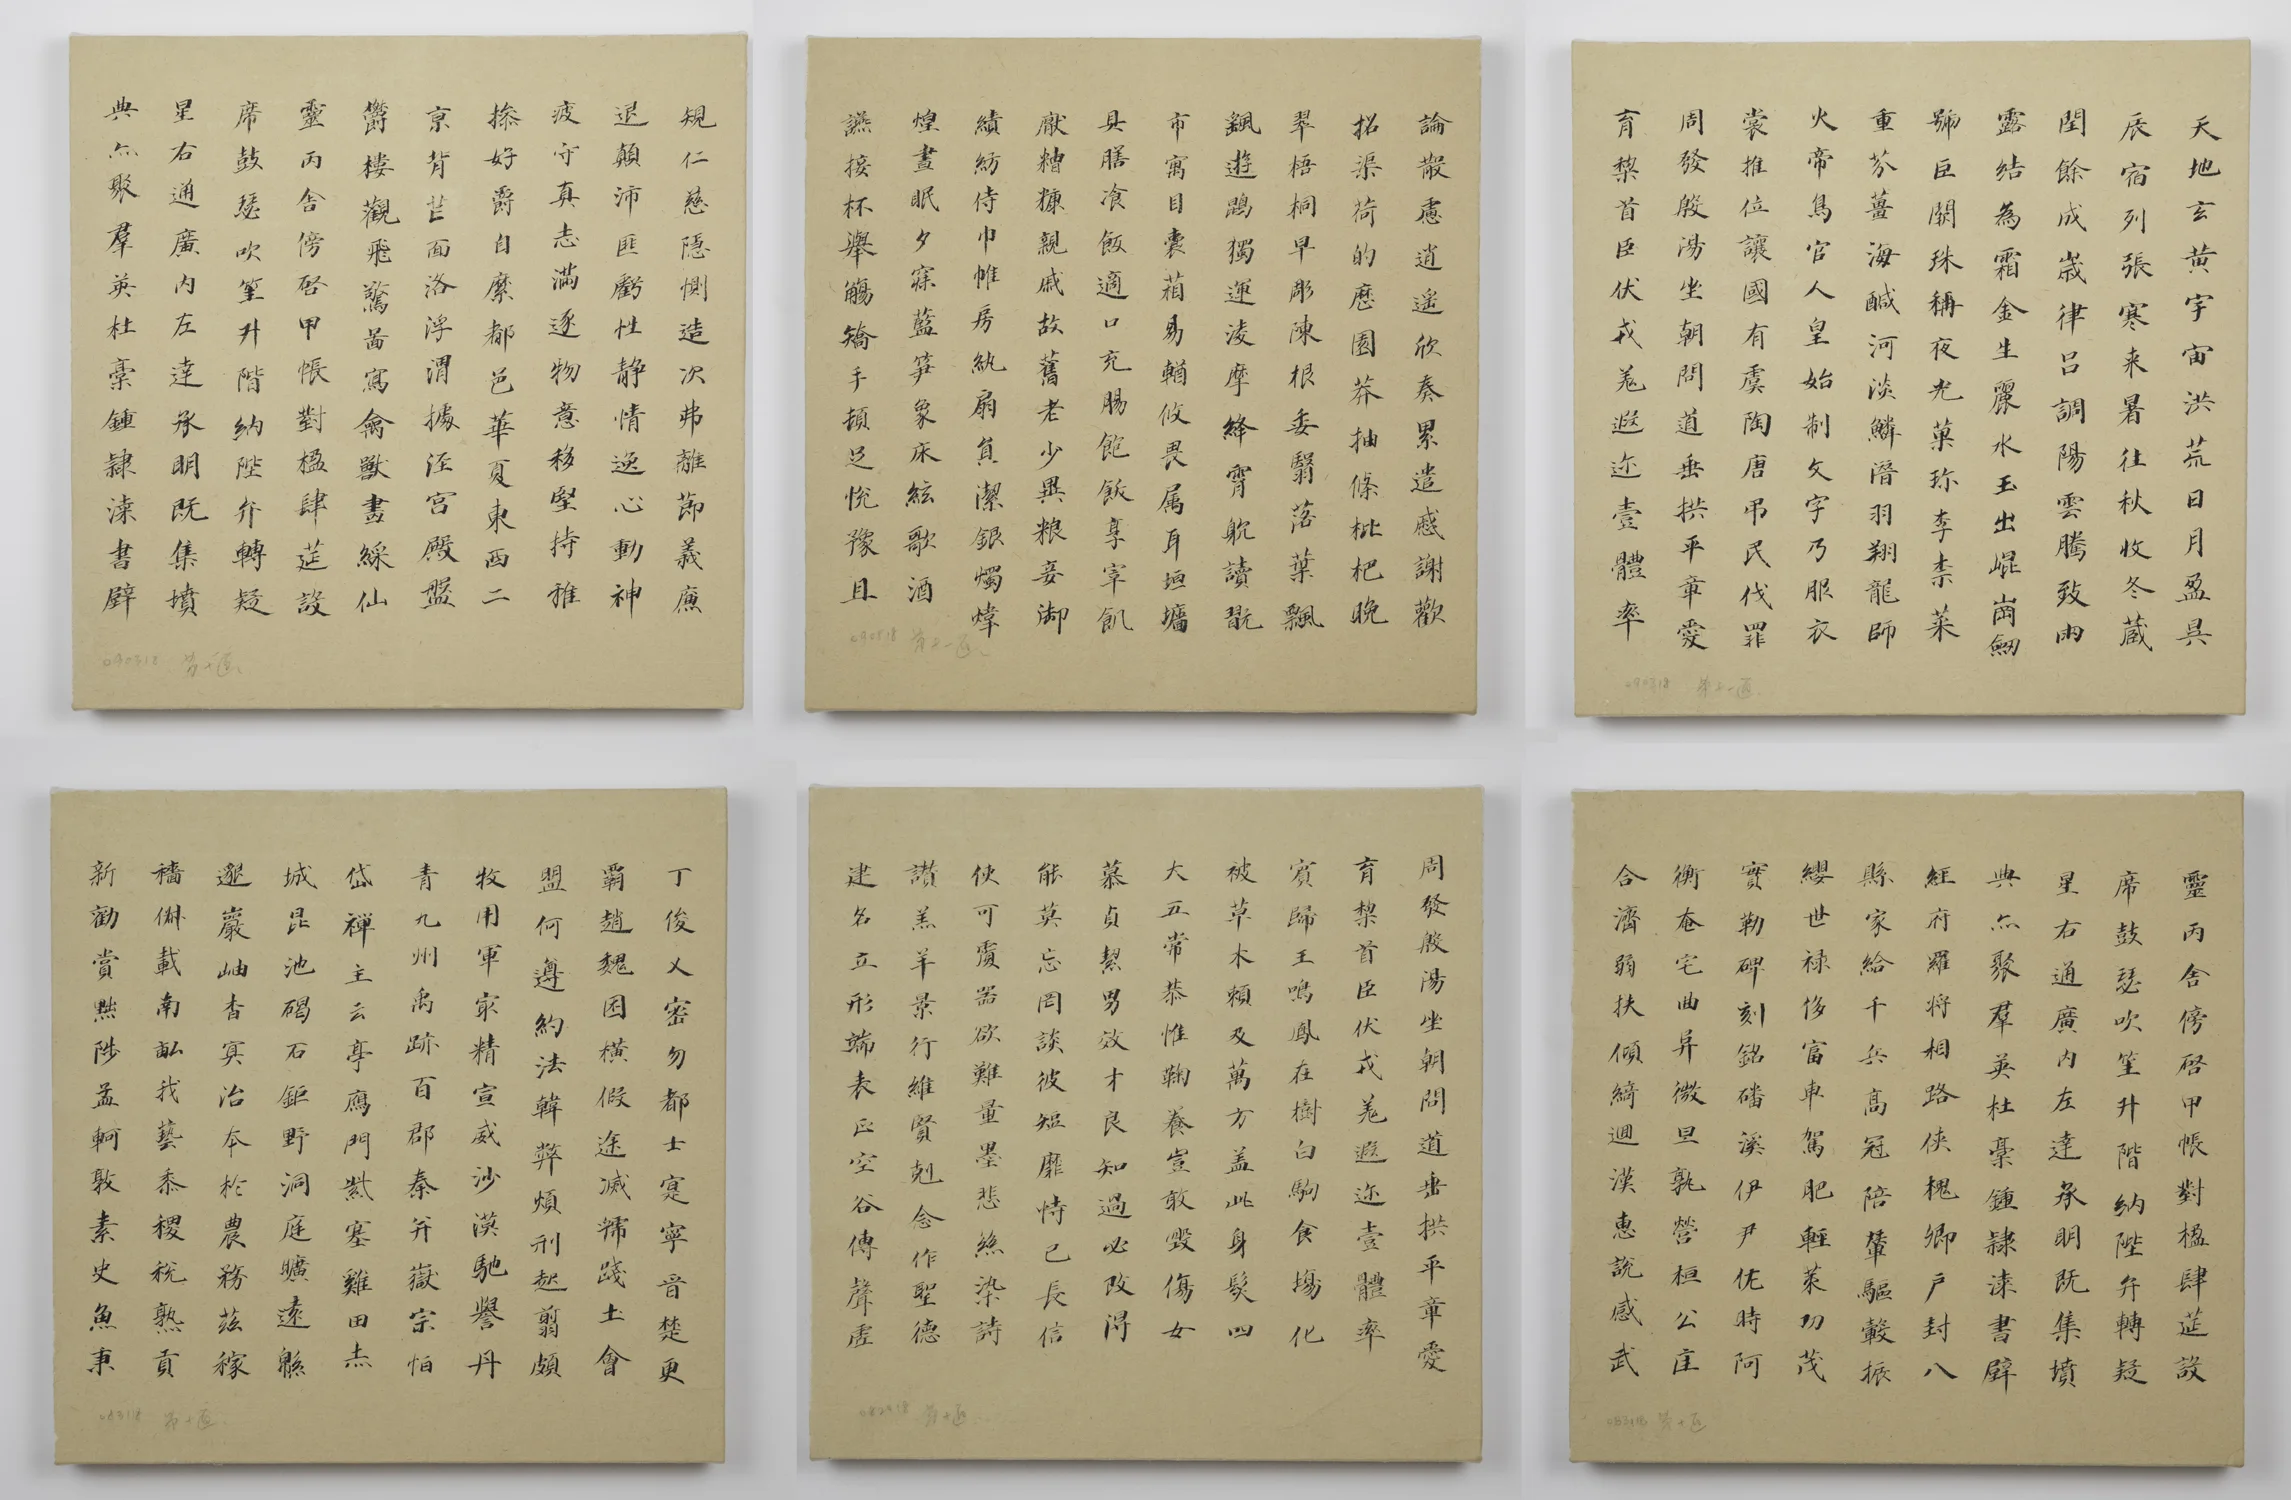 天地玄黃宇宙洪荒日月盈昃
辰宿列張寒来暑往秋收冬藏
閏餘成歲律呂調陽雲騰致雨
露結為霜金生麗水玉出崐崗劒
號巨闕珠稱夜光菓珍李柰菜
重芥薑海鹹河淡鱗潛羽翔龍師
火帝鳥官人皇始制文字乃服衣
裳推位讓國有虞陶唐弔民伐罪
周發殷湯坐朝問道垂拱平章愛
育黎首臣伏戎羌遐迩壹體率
090318 第十一遍
論散慮逍遥欣奏累遣慼謝歡
招渠荷的歷園莽抽條枇杷晚
翠梧桐早彫陳根委翳落葉飄
飖遊鵾獨運凌摩絳霄躭讀翫
市寓目囊箱易輶攸畏属耳垣墻
具膳飡飯適口充腸飽飫享宰飢
厭糟糠親戚故舊老少異粮妾御
績紡侍巾帷房紈扇員潔銀燭煒
煌晝眠夕寐藍笋象床絃歌酒
讌接杯舉觴矯手頓足悅豫且
規仁慈隱惻造次弗離節義廉
退顛沛匪虧性静情逸心動神
疲守真志滿逐物意移堅持雅
操好爵自縻都邑華夏東西二
京背芒面洛浮渭據涇宮殿盤
鬱樓觀飛驚啚寫禽獸畫綵仙
靈丙舍傍啓甲帳對楹肆莚設
席鼓瑟吹笙升階納陛弁轉疑
星右通廣内左達承明既集墳
典亦聚羣英杜稾鍾隸漆書壁
090318 第十遍
靈丙舍傍啓甲帳對楹肆莚設
席鼓瑟吹笙升階納陛弁轉疑
星右通廣内左達承明既集墳
典亦聚羣英杜稾鍾隸漆書壁
經府羅将相路俠槐卿户封八
縣家給千兵高冠陪輦驅轂振
纓世禄侈富車駕肥輕策功茂
實勒碑刻銘磻溪伊尹佐時阿
衡奄宅曲阜微旦孰營桓公匡
合濟弱扶傾綺迴漢惠說感武
第十遍
周發殷湯坐朝問道垂拱平章愛
育黎首臣伏戎羌遐迩壹體率
賓歸王鳴鳳在樹白駒食場化
被草木賴及萬方盖此身髮四
大五常恭惟鞠養豈敢毀傷女
慕貞絜男效才良知過必改得
能莫忘罔談彼短靡恃己長信
使可覆器欲難量墨悲絲染詩
讚羔羊景行維賢剋念作聖德
建名立形端表正空谷傳聲虛
082918 第十遍
丁俊乂密勿都士寔寧晉楚更
霸趙魏困橫假途滅虢踐土會
盟何遵約法韓弊煩刑起翦頗
牧用軍最精宣威沙漠馳譽丹
青九州禹跡百郡秦并嶽宗恒
岱禅主云亭鴈門紫塞雞田赤
城昆池碣石鉅野洞庭曠遠緜
邈巖岫杳冥治本於農務茲稼
穡俶載南畝我藝黍稷稅熟貢
新勸賞黜陟孟軻敦素史魚秉
083118 第十遍